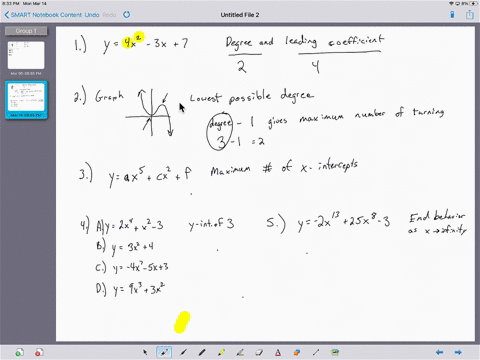 8:33 PM Mon Mar 14
SMART Notebook Content Undo Redo
Untitled File 2
Group 1
1.) y = 4x² - 3x + 7 Degree and leading coefficient
2 4
2.) Graph Lowest possible degree
degree - 1 gives maximum number of turning
3 - 1 = 2
3.) y = ax⁵ + cx² + f Maximum # of x-intercepts
4.) A) y = 2x⁴ + x² - 3 y-int. of 3
B.) y = 3x² + 4
C.) y = -4x⁷ - 5x + 3
D.) y = 9x³ + 3x²
5.) y = -2x¹³ + 25x⁸ - 3 End behavior
as x →